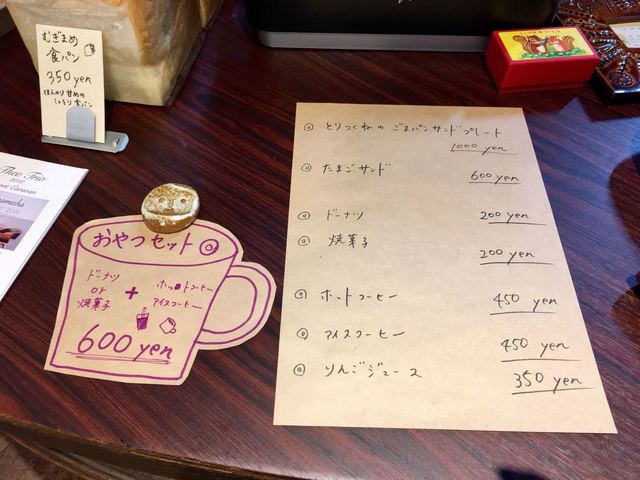 むぎまめ
食パン
350yen
ほんのり甘めの
しっとり食パン
Thee Trio
おやつセット◎
ドーナツ
or
焼菓子
+
ホットコーヒー
アイスコーヒー
600yen
◎ とりつくねの ごまパンサンドプレート
1000 yen
◎ たまごサンド
600 yen
◎ ドーナツ 200 yen
◎ 焼菓子
200 yen
◎ ホットコーヒー 450 yen
◎ アイスコーヒー 450 yen
◎ りんごジュース 350 yen